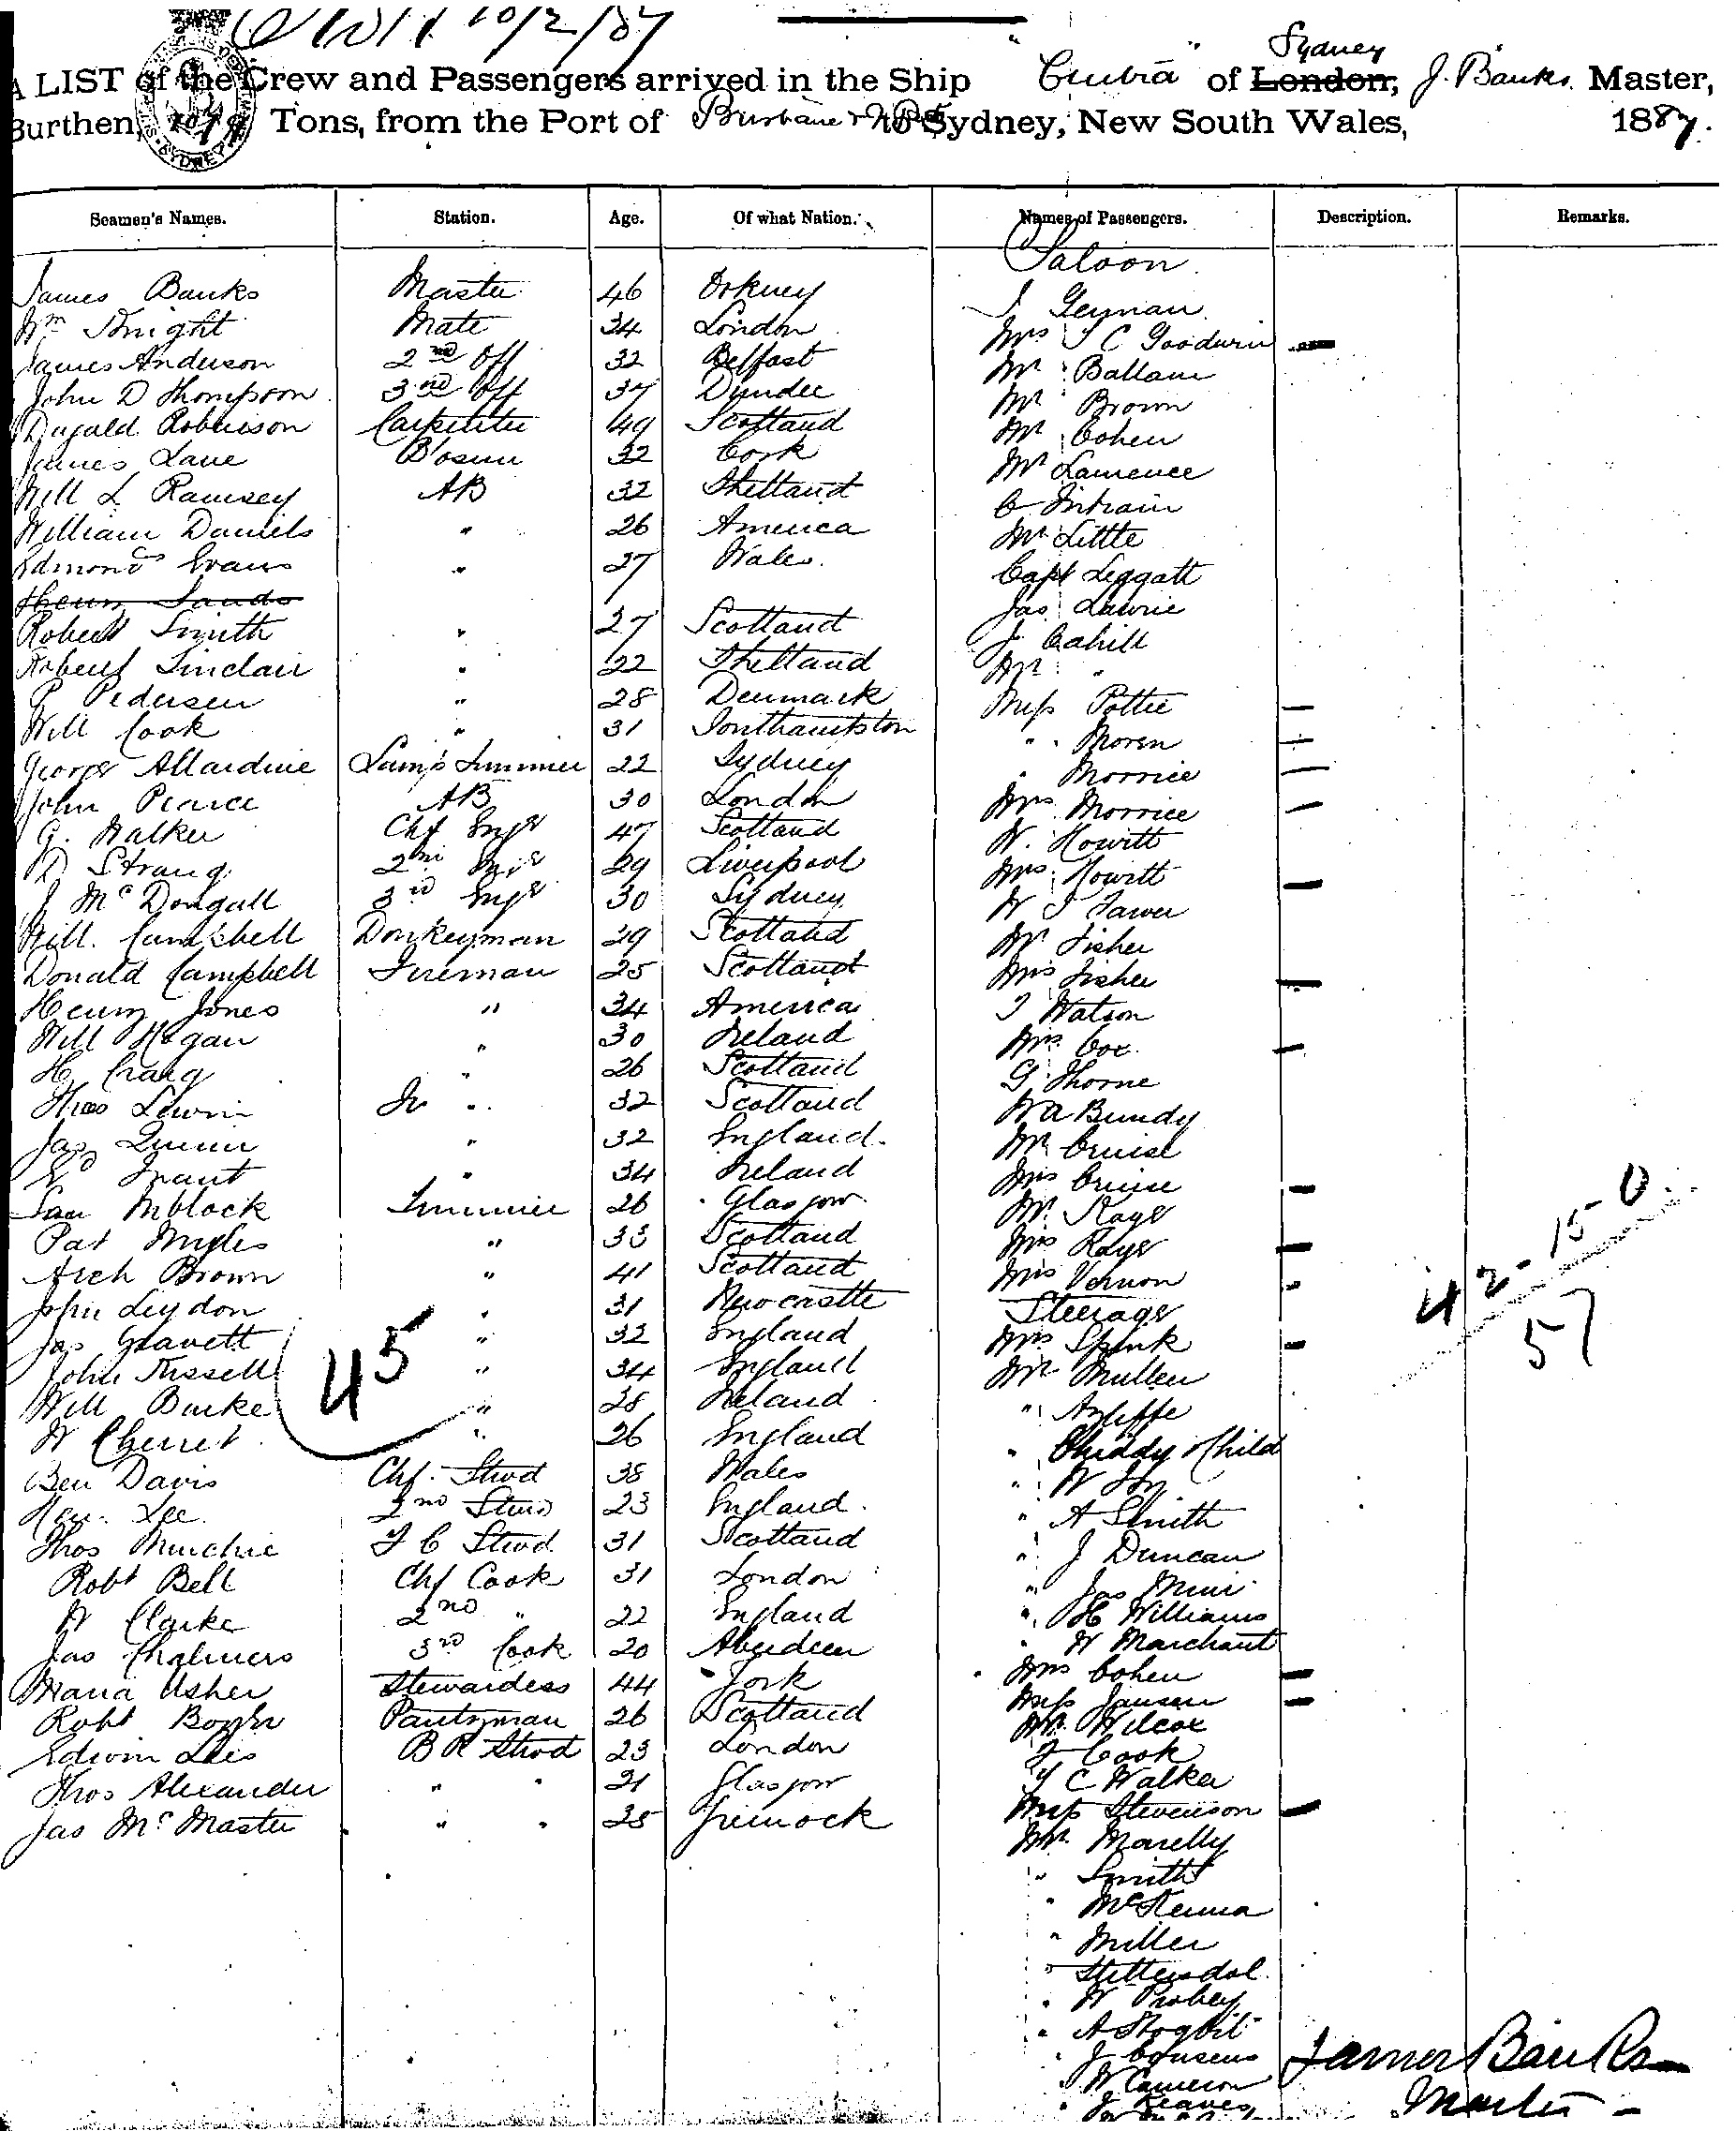 10/2/87
A LIST of the Crew and Passengers arrived in the Ship "Cintra" of London, Sydney J. Banks Master,
Burthen, Tons, from the Port of Brisbane to Sydney, New South Wales, 1887.
Seamen's Names. Station. Age. Of what Nation. Names of Passengers. Description. Remarks.
Saloon
James Banks Master 46 Orkney J Geyman
Wm Knight Mate 34 London Mrs J C Goodwin —
James Anderson 2nd Off 32 Belfast Mr Ballam
John D Thompson 3rd Off 37 Dundee Mr Brown
Dugald Robinson Carpenter 49 Scotland Mr Cohen
James Lane Bosun 32 Cork Mr Lawrence
Will L Ramsey AB 32 Shetland C
William Daniels " 26 America Mr Little
Edmond Evans " 27 Wales. Capt Leggatt
Henry Jas Lawrie
Robert Smith " 27 Scotland J Cahill
Robert Sinclair " 22 Shetland Mr "
P Pedersen " 28 Denmark Miss Pottie —
Will Cook " 31 Southampton " Moren —
George Allardice Lamp Trimmer 22 Sydney " Morrice —
John Pearce AB 30 London Mrs Morrice —
G. Walker Chf Engr 47 Scotland W. Howitt
D Strang 2nd Engr 29 Liverpool Mrs Howitt —
J McDougall 3rd Engr 30 Sydney W J
Will. Campbell Donkeyman 29 Scotland Mr Fisher
Donald Campbell Fireman 25 Scotland Mrs Fisher —
Henry Jones " 34 America T Watson
Will Hogan " 30 Ireland Mrs Cox —
H Craig " 26 Scotland G Thorne
Thos Lewin " 32 Scotland W A Bundy
Jas Quinn " 32 England Mr Cruise
Grant " 34 Ireland Mrs Cruise —
Trimmer 26 Glasgow Mr Kaye
Pat Myles " 33 Scotland Mrs Kaye —
Arch Brown " 41 Scotland Mrs Vernon —
John Leydon " 31 Newcastle Steerage
Jas Gravett " 32 England Mrs Spink —
John Kissell " 34 England Mr Mullen
Will Burke " 28 Ireland " Ayliffe
W Cherret " 26 England " Chiddy & Child
Ben Davis Chf. Stwd 38 Wales " W
Hen. Lee 2nd Stwd 23 England " A Smith
Thos Murchie F C Stwd 31 Scotland " J Duncan
Robt Bell Chf Cook 31 London " Jas
W Clarke 2nd " 22 England " H Williams
Jas Chalmers 3rd Cook 20 Aberdeen " W Marchant
Maria Usher Stewardess 44 York Mrs Cohen —
Robt Pantryman 26 Scotland Miss Jansen —
Edwin B R Stwd 23 London Mr Wilcox
Thos Alexander " " 21 Glasgow J Cook
Jas McMaster " " 25 Greenock J C Walker
Miss Stevenson —
Mr Marelly
" Smith
" McKenna
" Miller
"
" W Probey
" A
" J Cousens
" W Cameron
" J Reaves
45
42-15-0
57
James Banks
Master